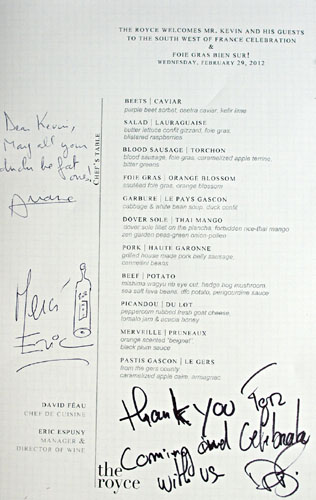 THE ROYCE WELCOMES MR. KEVIN AND HIS GUESTS
TO THE SOUTH WEST OF FRANCE CELEBRATION
&
FOIE GRAS BIEN SUR!
WEDNESDAY, FEBRUARY 29, 2012
CHEF'S TABLE
BEETS | CAVIAR
purple beet sorbet, osetra caviar, kefir lime
SALAD | LAURAGUAISE
butter lettuce confit gizzard, foie gras,
blistered raspberries
BLOOD SAUSAGE | TORCHON
blood sausage, foie gras, caramelized apple terrine,
bitter greens
FOIE GRAS | ORANGE BLOSSOM
foie gras, orange blossom
GARBURE | LE PAYS GASCON
cabbage & white bean soup, duck confit
DOVER SOLE | THAI MANGO
dover sole filet on the plancha, forbidden rice-thai mango
zen garden peas-green onion-pollen
PORK | HAUTE GARONNE
grilled house made pork belly sausage,
beans
BEEF | POTATO
mishima wagyu rib eye cut, hedge hog mushroom,
potato, perigourdine sauce
PICANDOU | DU LOT
peppercorn rubbed fresh goat cheese,
tomato jam & acacia honey
MERVEILLE | PRUNEAUX
orange scented "beignet",
black plum sauce
PASTIS GASCON | LE GERS
from the gers county
caramelized apple cake, armagnac
Dear Kevin,
May all your
ducks be fat
ones!
Ariane
Merci
Eric
DAVID FÉAU
CHEF DE CUISINE
ERIC ESPUNY
MANAGER &
DIRECTOR OF WINE
the
royce
Thank you For
Coming and Celebrate
with us